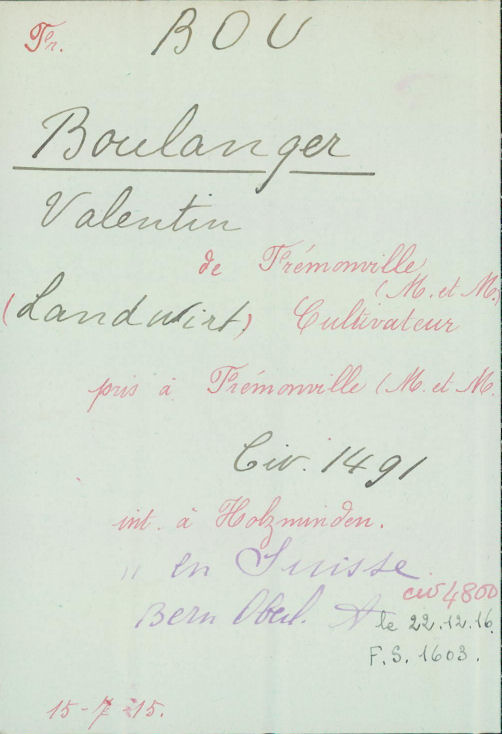 Fr. BOU
Boulanger
Valentin
de Frémonville
(M. et M.
(Landwirt) Cultivateur
pris à Frémonville (M. et M.
Civ. 1491
int. à Holzminden.
" en Suisse
civ 4800
Bern Oberl. A le 22.12.16.
F.S. 1603.
15-7-15.